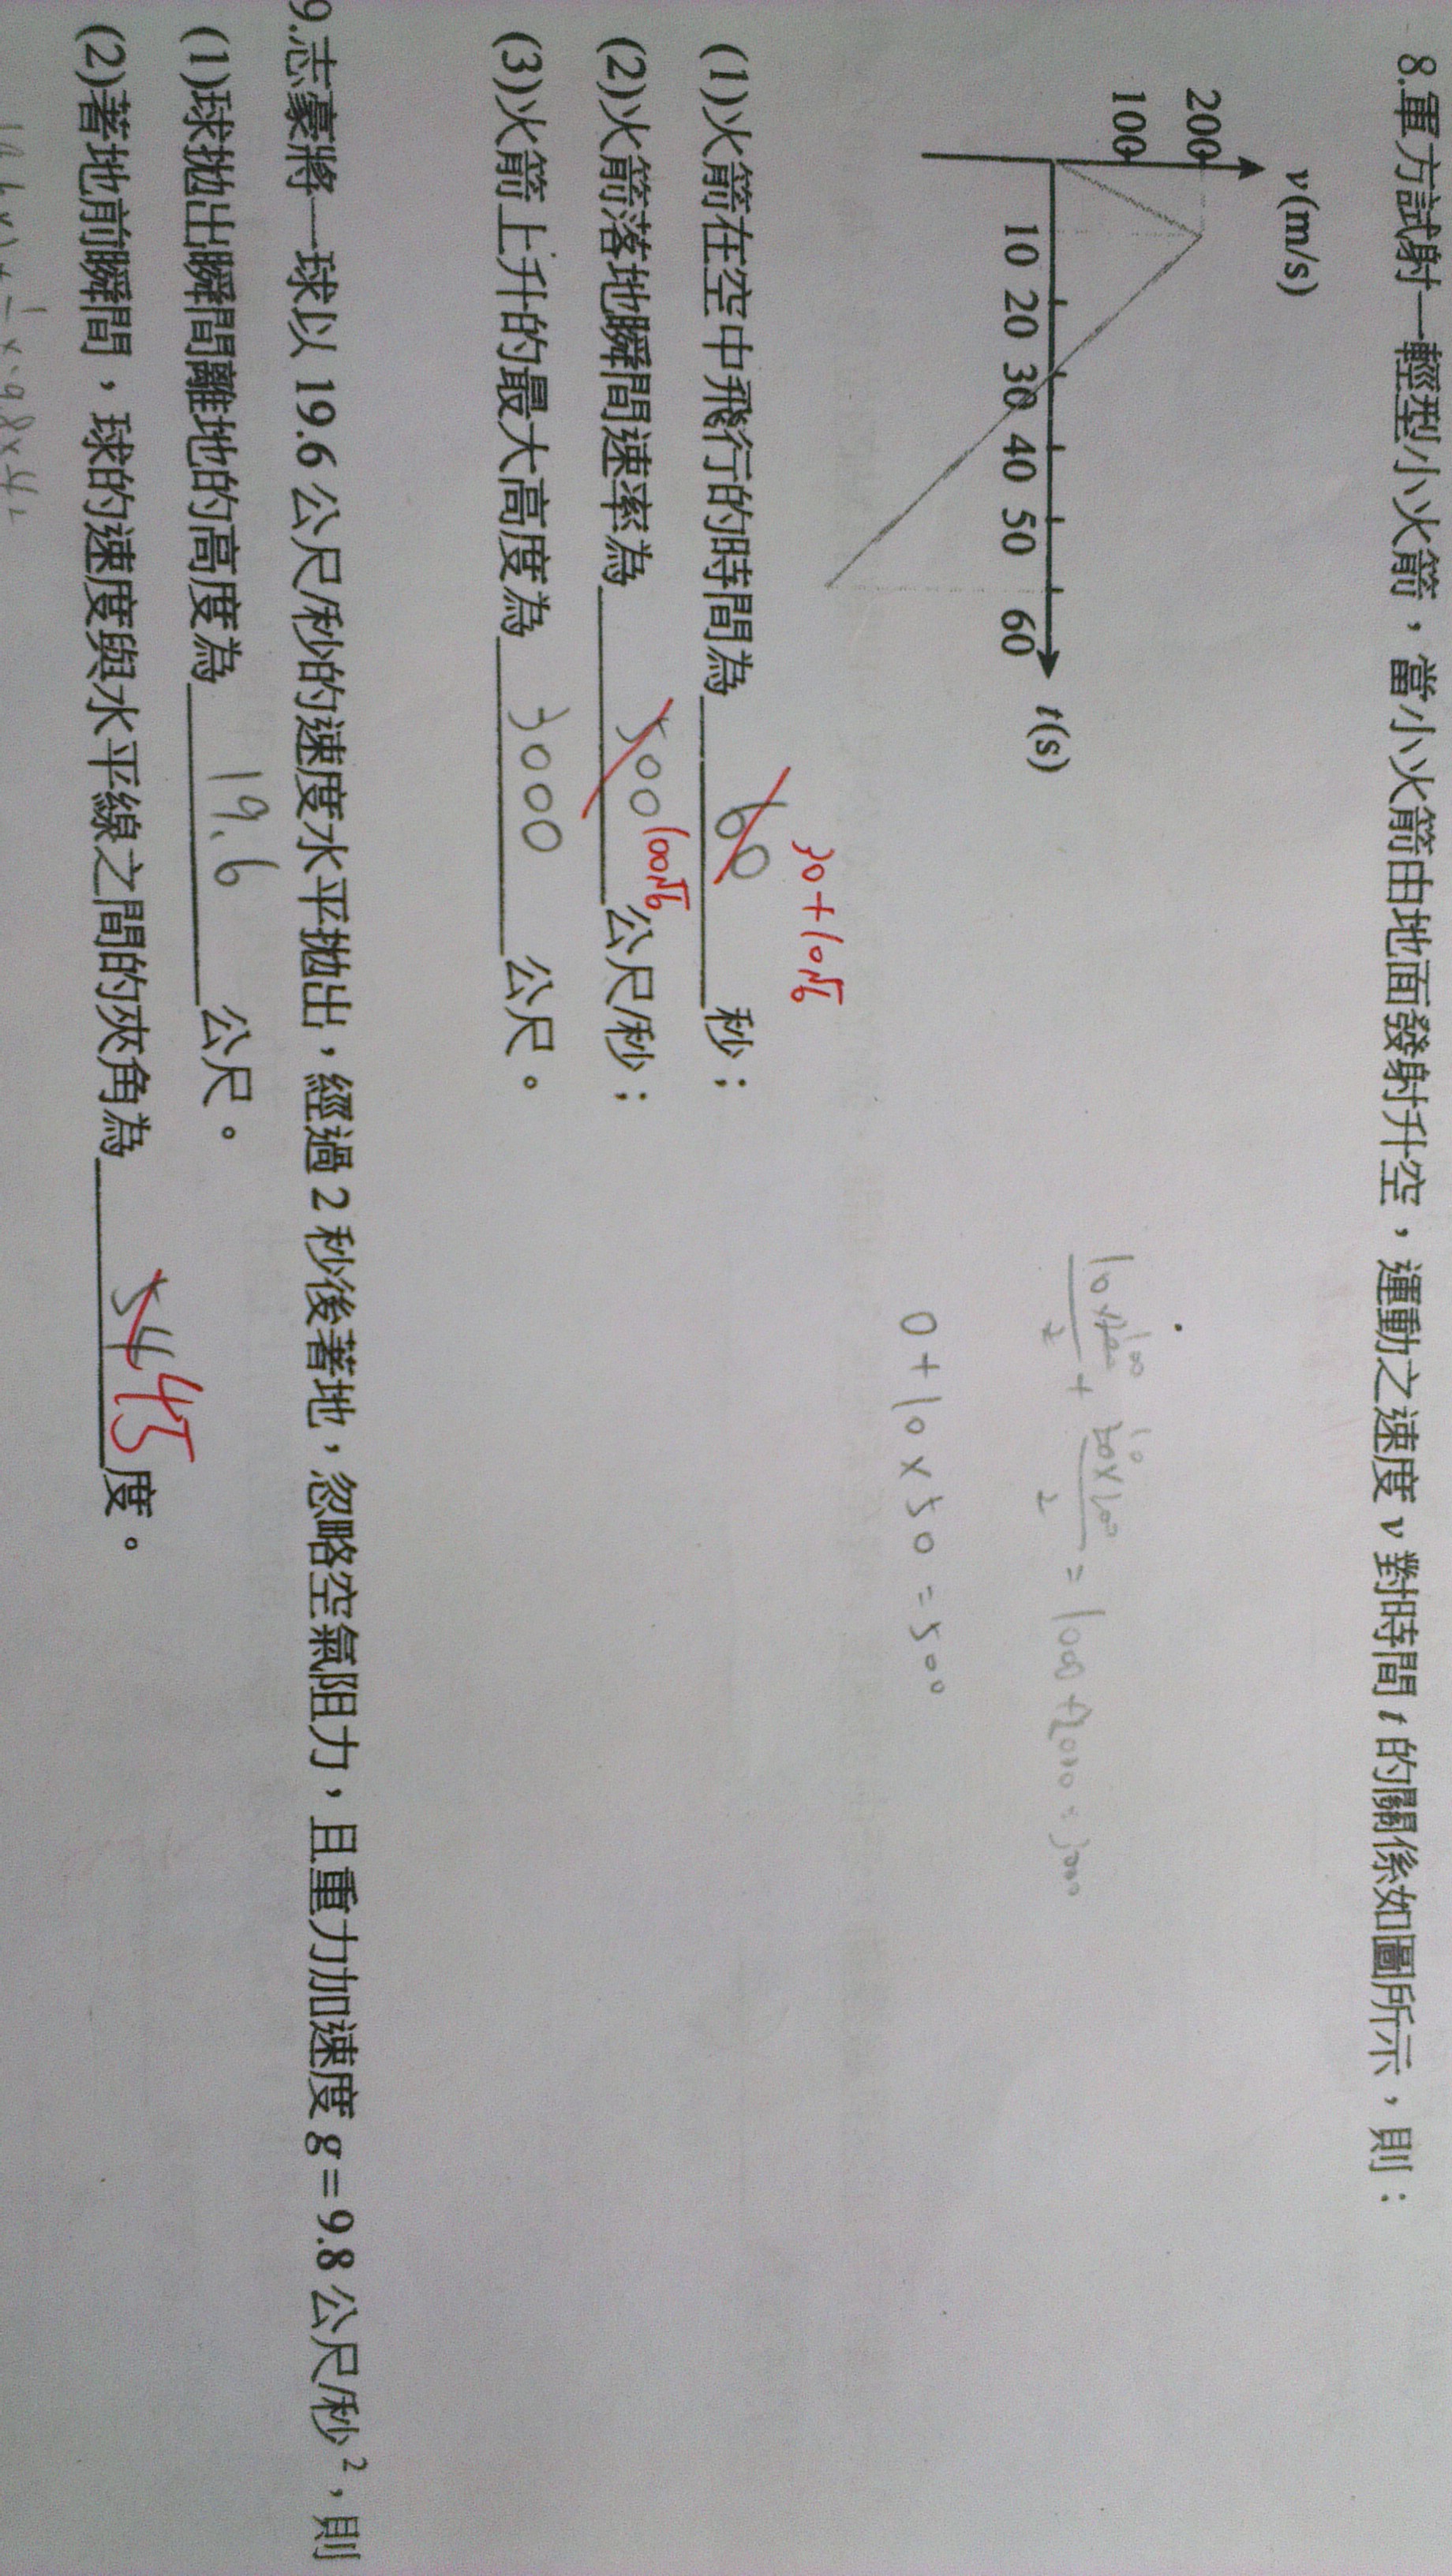 8.軍方試射一輕型小火箭，當小火箭由地面發射升空，運動之速度 v 對時間 t 的關係如圖所示，則：
v(m/s)
200
100
10 20 30 40 50 60 t(s)
0+10×50=500
30+10√6
(1)火箭在空中飛行的時間為 60 秒；
(2)火箭落地瞬間速率為 500 100√6 公尺/秒；
(3)火箭上升的最大高度為 3000 公尺。
9.志豪將一球以 19.6 公尺/秒的速度水平拋出，經過 2 秒後著地，忽略空氣阻力，且重力加速度 g＝9.8 公尺/秒²，則
(1)球拋出瞬間離地的高度為 19.6 公尺。
(2)著地前瞬間，球的速度與水平線之間的夾角為 54 45 度。